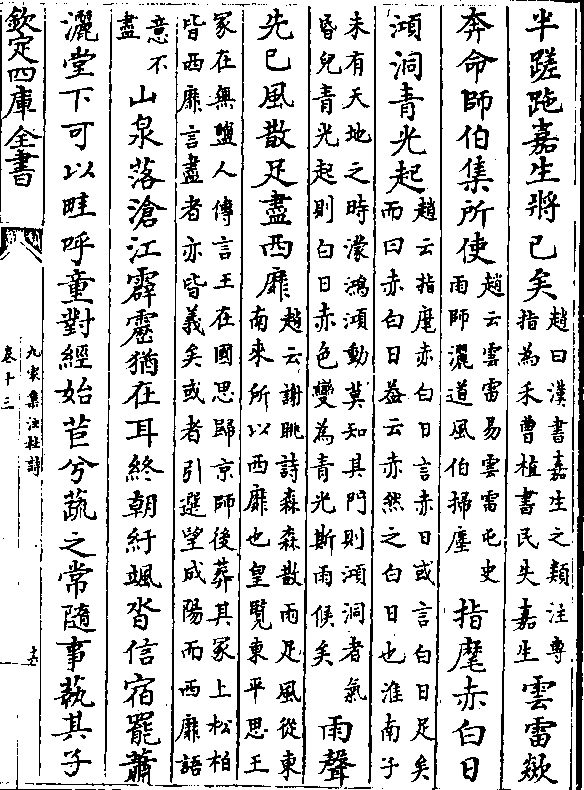 半蹉跎嘉生將已矣
趙曰漢書嘉生之類注專
指為禾曹植書民失嘉生
雲雷歘
奔命師伯集所使
趙云雲雷易雲雷屯史
雨師灑道風伯掃塵
指麾赤白日
澒洞青光起
趙云指麾赤白日言赤日或言白日足矣
而曰赤白日益云赤然之白日也淮南子
未有天地之時濛鴻澒動莫知其門則澒洞者氣
昏兒青光起則白日赤色變為青光斯雨候矣
雨聲
先已風散足盡西靡
趙云謝眺詩森森散雨足風從東
南來所以西靡也皇覽東平思王
冢在無鹽人傳言王在國思歸京師後葬其冢上松柏
皆西靡言盡者亦皆義矣或者引選望咸陽而西靡語
意不
盡
山泉落滄江霹靂猶在耳終朝紆颯沓信宿罷蕭
灑堂下可以畦呼童對經始苣兮蔬之常隨事蓺其子
欽定四庫全書
九家集注杜詩
卷十三